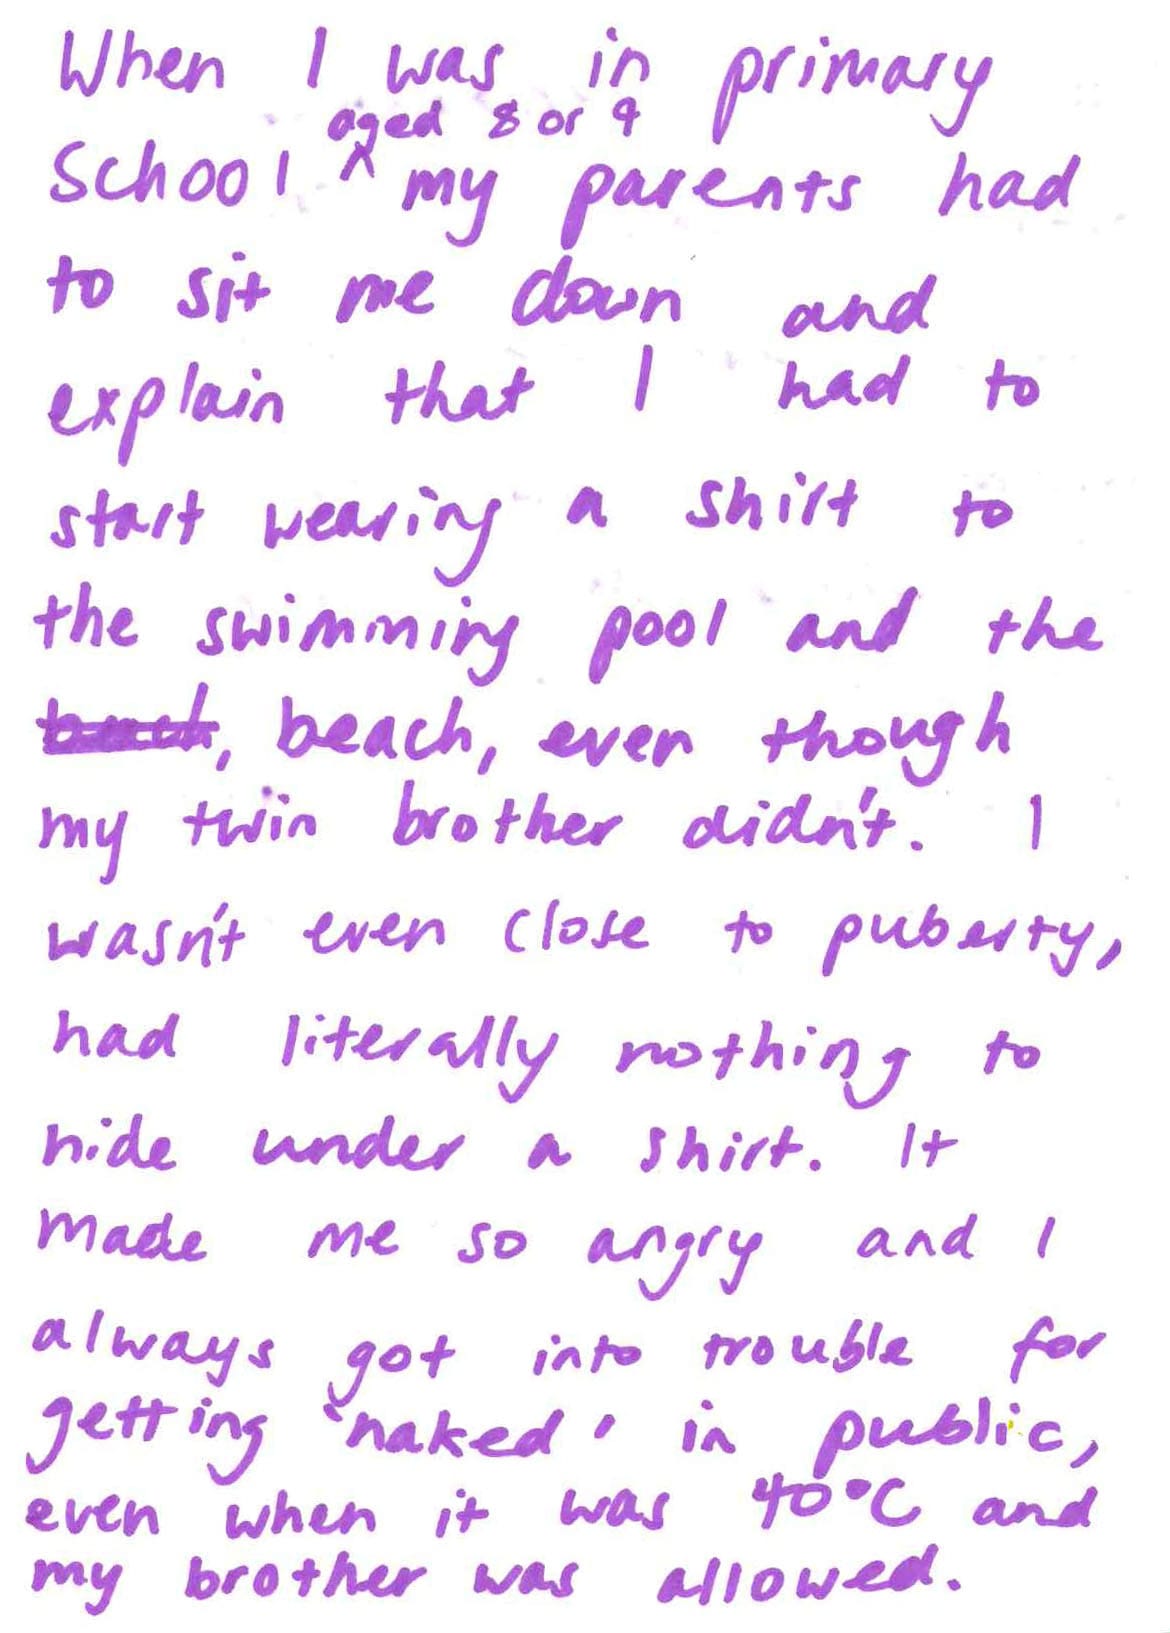 When I was in primary
aged 8 or 9
School ^ my parents had
to sit me down and
explain that I had to
start wearing a shirt to
the swimming pool and the
, beach, even though
my twin brother didn't. I
wasn't even close to puberty,
had literally nothing to
hide under a shirt. It
made me so angry and I
always got into trouble for
getting 'naked' in public,
even when it was 40°C and
my brother was allowed.